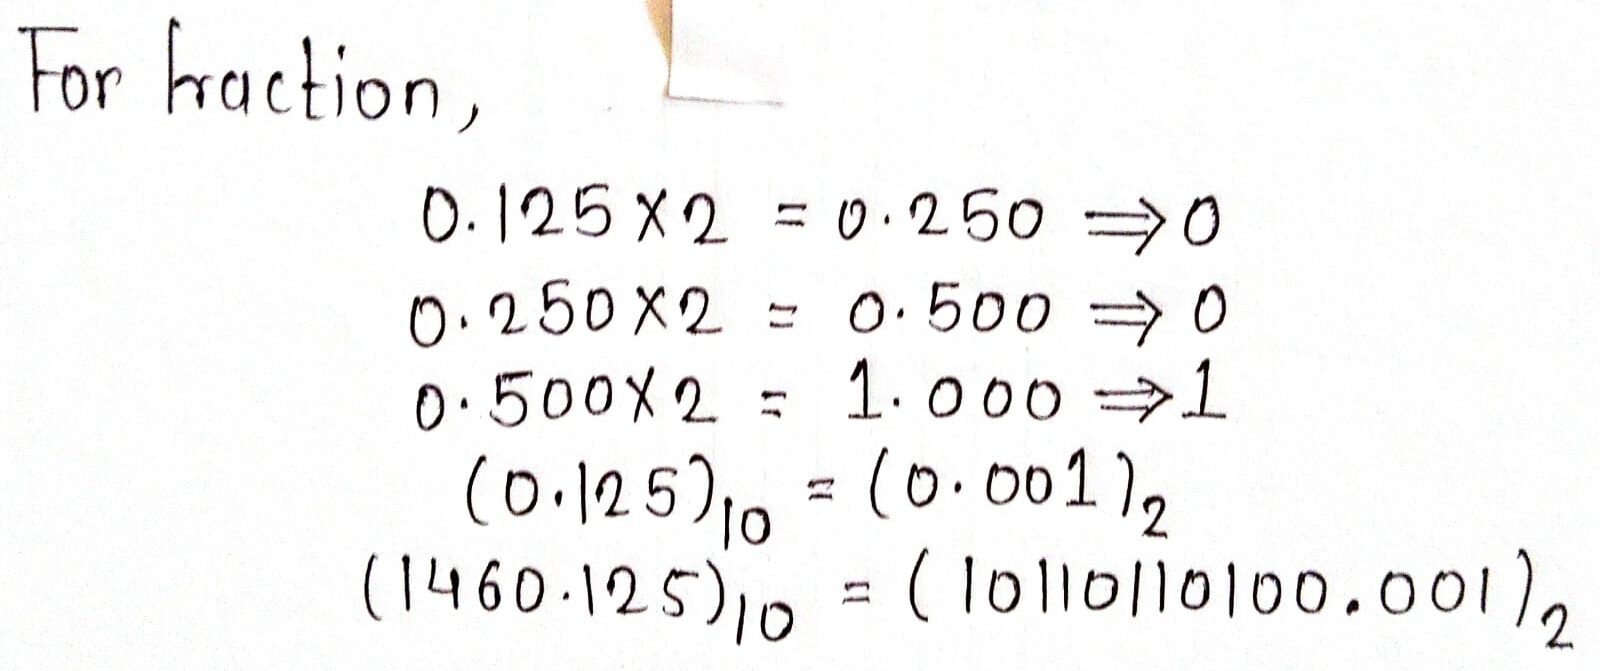 For fraction,
0.125 × 2 = 0.250 ⇒ 0
0.250 × 2 = 0.500 ⇒ 0
0.500 × 2 = 1.000 ⇒ 1
(0.125)₁₀ = (0.001)₂
(1460.125)₁₀ = (10110110100.001)₂